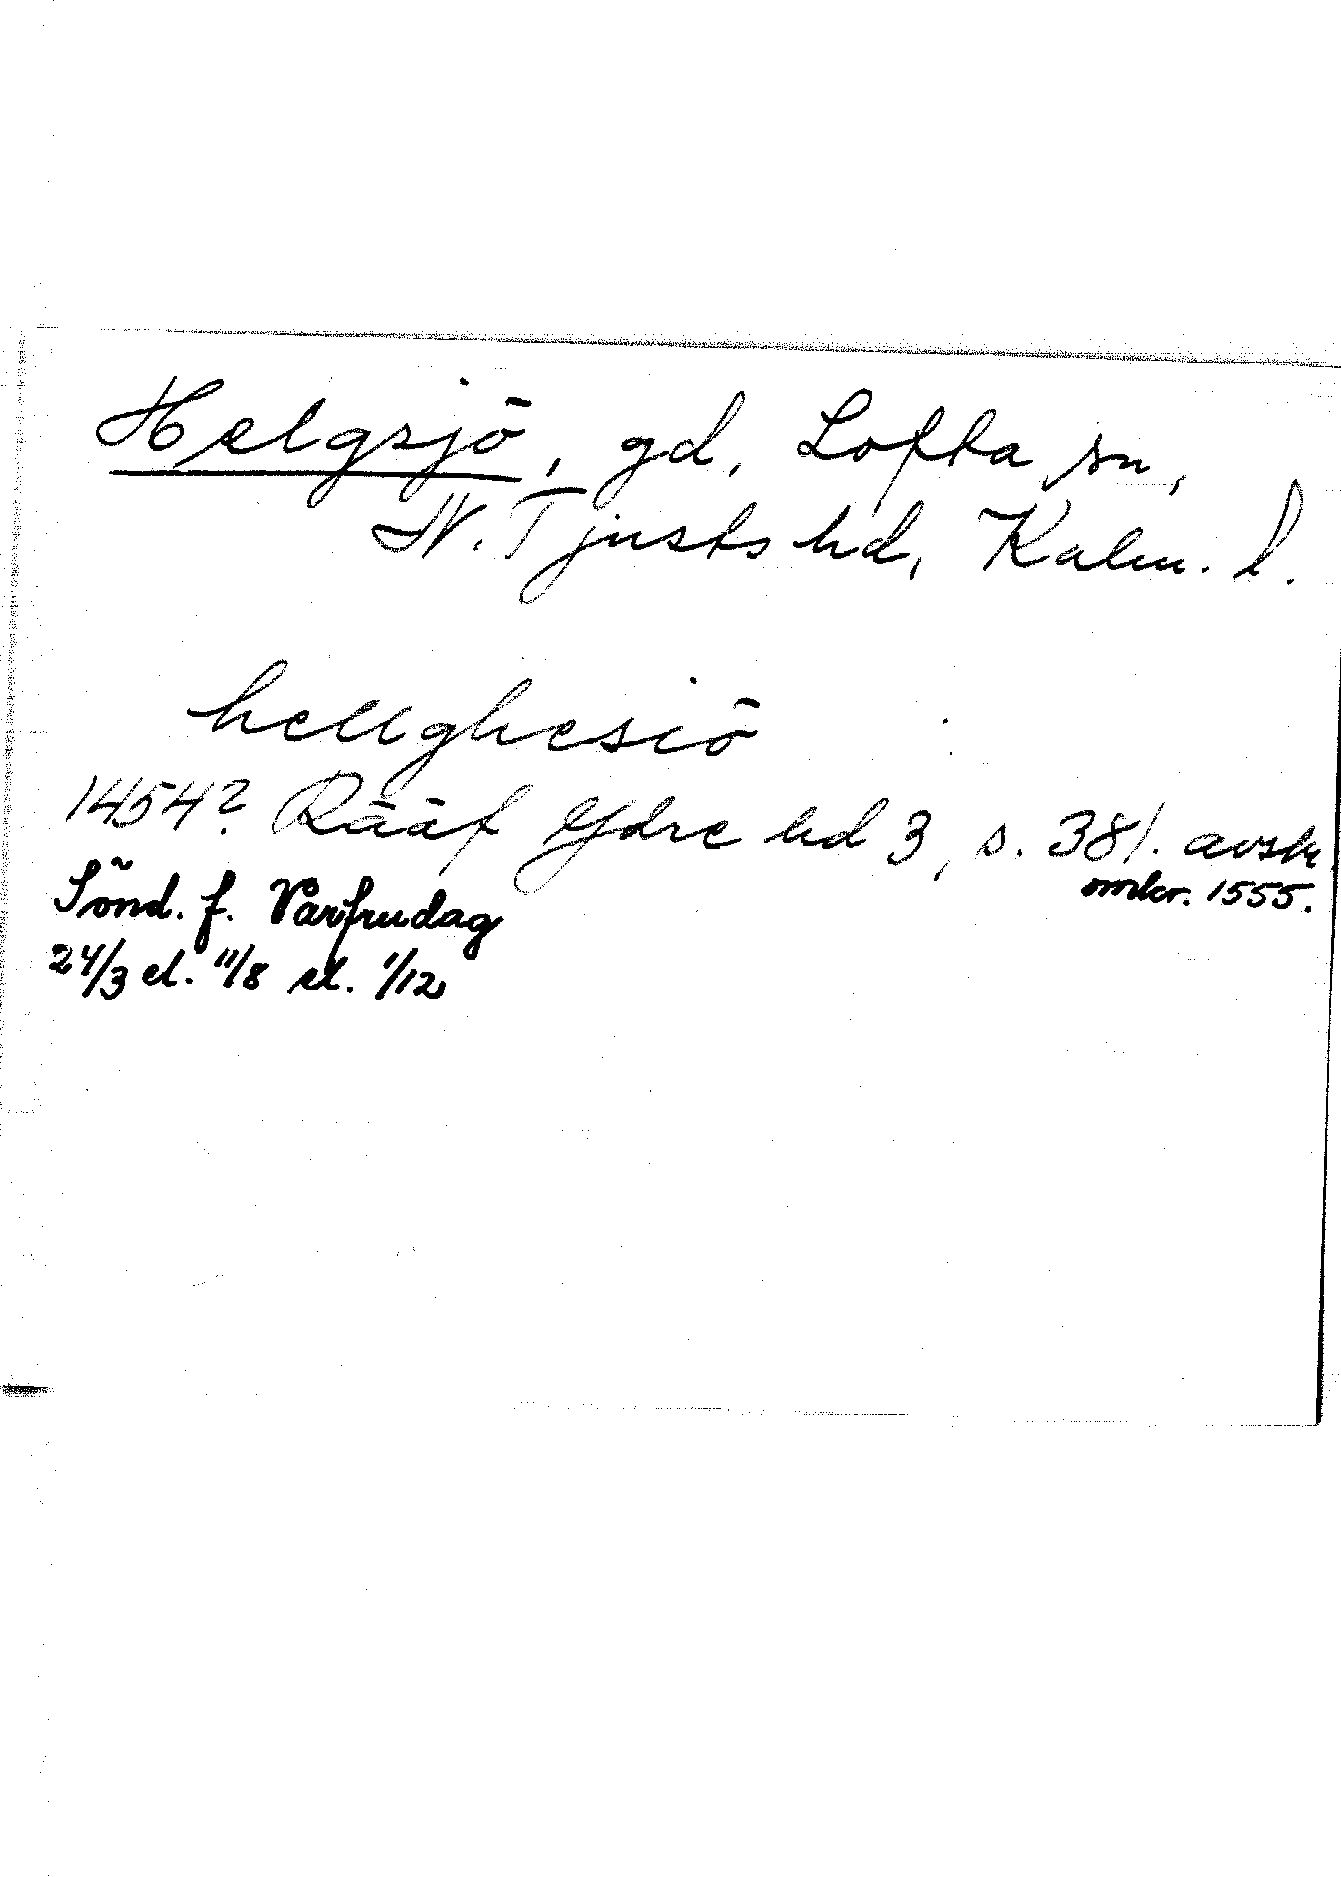 Helgsjö, gd, Lofta sn,
N. Tjusts hd, Kalm. l.
hellghesiö
1454? Rääf Ydre hd 3, s. 381. avskr.
omkr. 1555.
Sönd. f. Vårfrudag
24/3 el. 11/8 el. 1/12